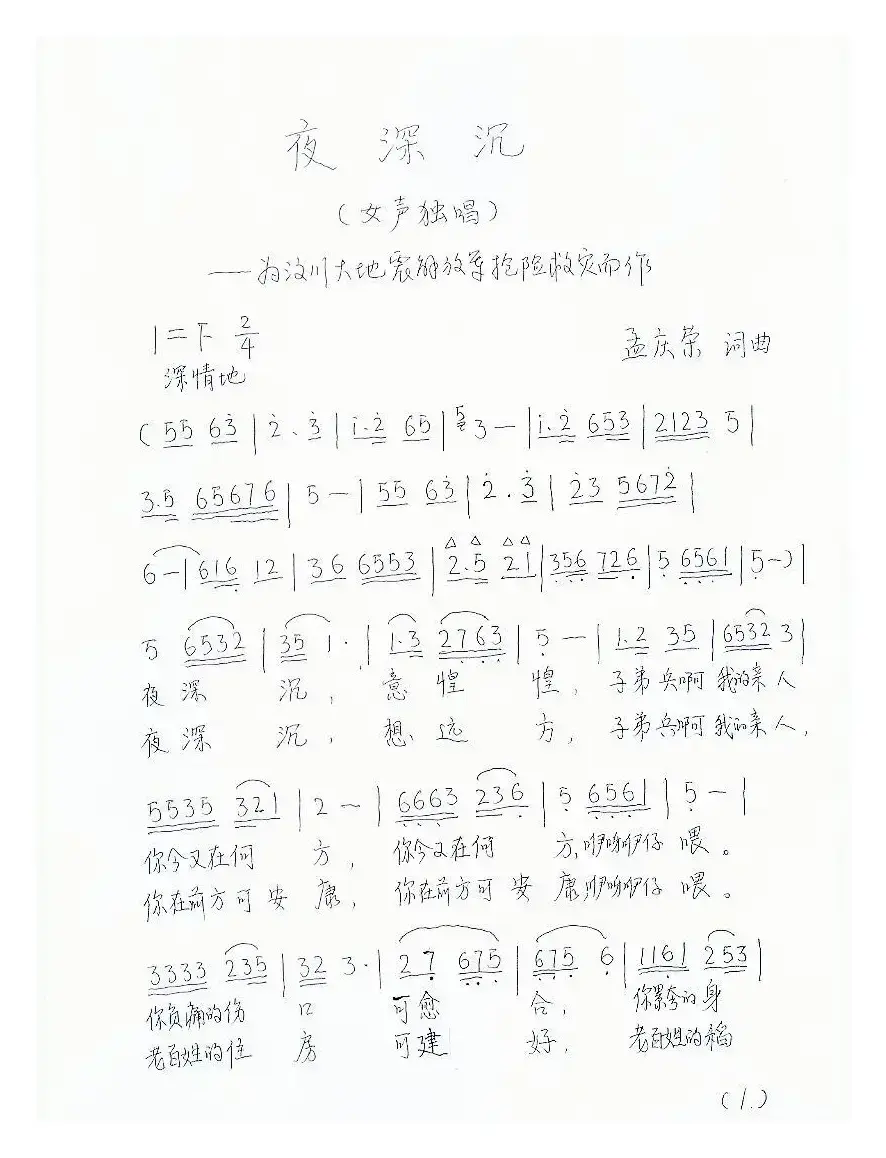 夜深沉
(女声独唱)
——为汶川大地震解放军抢险救灾而作
1=F 2/4
孟庆荣 词曲
深情地
(55 63̇ | 2̇. 3̇ | i.2̇ 65 | 5 3 — | i.2̇ 653 | 2123 5 |
3.5 65676 | 5 — | 55 63̇ | 2̇. 3̇ | 2̇3 5672̇ |
6 — | 616̣ 12 | 36 6553 | 2.5 21 | 356 726 | 5̣ 6̣5̣6̣1 | 5̣ —) |
5 6532 | 35 1. | 1.3 2763 | 5̣ — | 1.2 35 | 6532 3 |
夜深 沉, 意惶 惶, 子弟兵啊我的亲人
夜深 沉, 想远 方, 子弟兵啊我的亲人,
5535 321 | 2 — | 6663 236 | 5̣ 6̣5̣6̣1 | 5̣ — |
你今又在何 方, 你今又在何 方,咿呀咿仔 喂。
你在前方可安 康, 你在前方可安 康,咿呀咿仔 喂。
3333 235 | 32 3. | 27̣ 6̣7̣5̣ | 6̣7̣5̣ 6̣ | 116̣1 253 |
你负痛的伤 口 可愈 合, 你累垮的身
老百姓的住 房 可建 好, 老百姓的稻
(1.)